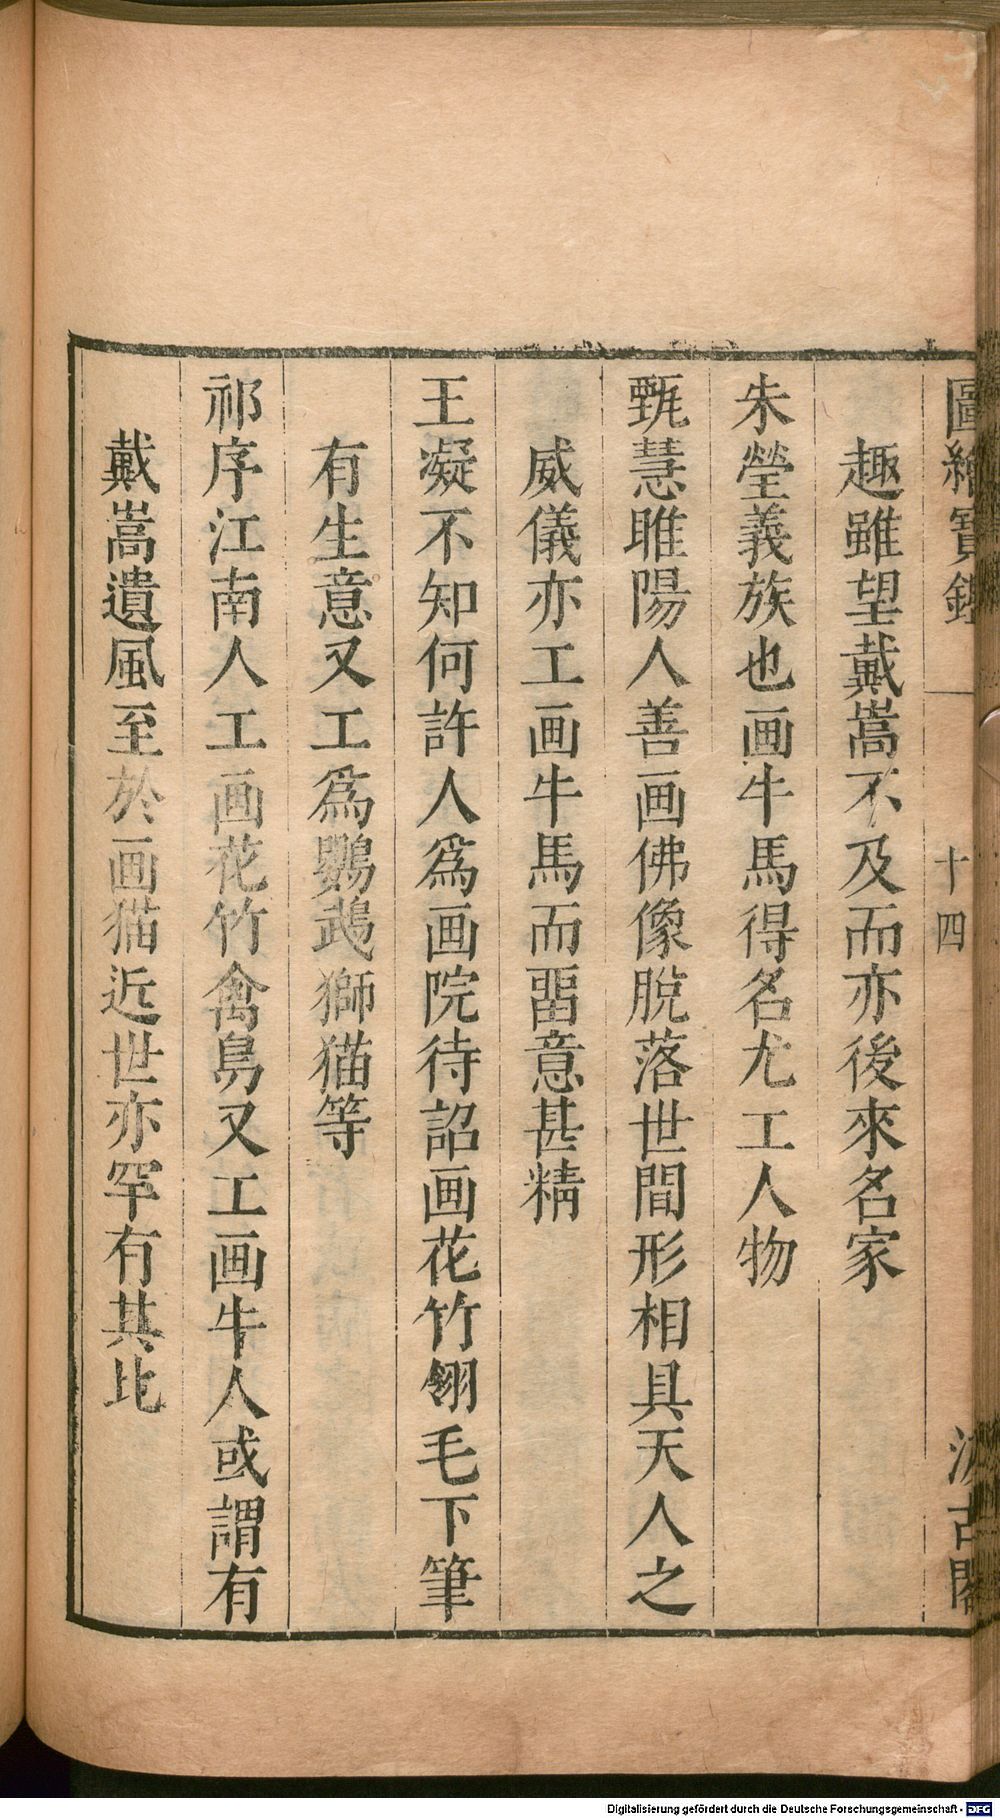 圖繪寶鑑
十四
汲古閣
趣雖望戴嵩不及而亦後來名家
朱瑩義族也画牛馬得名尤工人物
甄慧睢陽人善画佛像脫落世間形相具天人之
威儀亦工画牛馬而畱意甚精
王凝不知何許人爲画院待詔画花竹翎毛下筆
有生意又工爲鸚鵡獅猫等
祁序江南人工画花竹禽鳥又工画牛人或謂有
戴嵩遺風至於画猫近世亦罕有其比
Digitalisierung gefördert durch die Deutsche Forschungsgemeinschaft - DFG